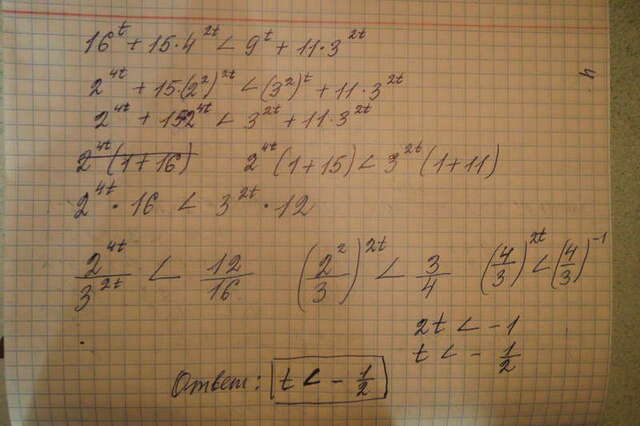 16^t + 15·4^2t < 9^t + 11·3^2t
2^4t + 15·(2^2)^2t < (3^2)^t + 11·3^2t
2^4t + 15·2^4t < 3^2t + 11·3^2t
2^4t(1+16) 2^4t(1+15) < 3^2t(1+11)
2^4t · 16 < 3^2t · 12
2^4t/3^2t < 12/16 (2^2/3)^2t < 3/4 (4/3)^2t < (4/3)^-1
2t < -1
t < - 1/2
Ответ: t < - 1/2
4.